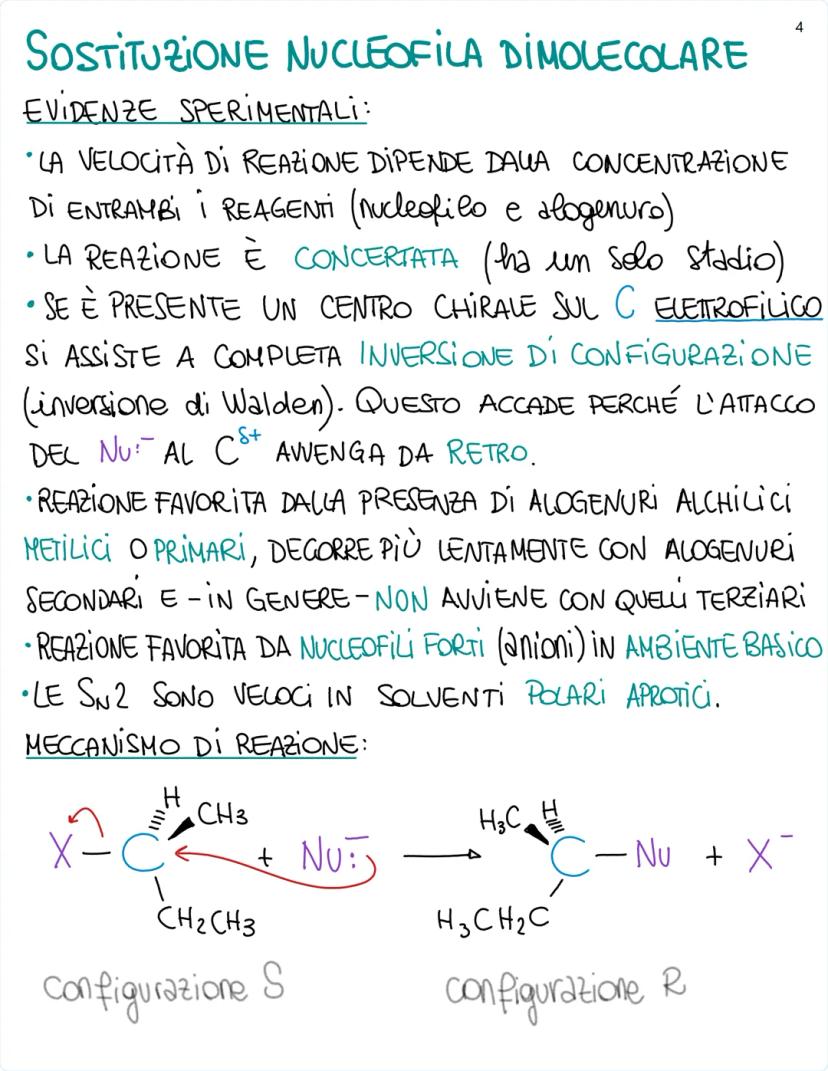 4
SOSTITUZIONE NUCLEOFILA DIMOLECOLARE
EVIDENZE SPERIMENTALI:
• LA VELOCITÀ DI REAZIONE DIPENDE DALLA CONCENTRAZIONE
DI ENTRAMBI I REAGENTI (nucleofilo e alogenuro)
• LA REAZIONE È CONCERTATA (ha un solo stadio)
• SE È PRESENTE UN CENTRO CHIRALE SUL C ELETTROFILICO
SI ASSISTE A COMPLETA INVERSIONE DI CONFIGURAZIONE
(inversione di Walden). QUESTO ACCADE PERCHÉ L'ATTACCO
DEL Nu:⁻ AL C^δ+ AVVENGA DA RETRO.
• REAZIONE FAVORITA DALLA PRESENZA DI ALOGENURI ALCHILICI
METILICI O PRIMARI, DECORRE PIÙ LENTAMENTE CON ALOGENURI
SECONDARI E - IN GENERE - NON AVVIENE CON QUELLI TERZIARI
• REAZIONE FAVORITA DA NUCLEOFILI FORTI (anioni) IN AMBIENTE BASICO
• LE SN2 SONO VELOCI IN SOLVENTI POLARI APROTICI.
MECCANISMO DI REAZIONE:
H CH3 H3C H
X – C + Nu:⁻ → C – Nu + X⁻
CH2CH3 H3CH2C
configurazione S configurazione R